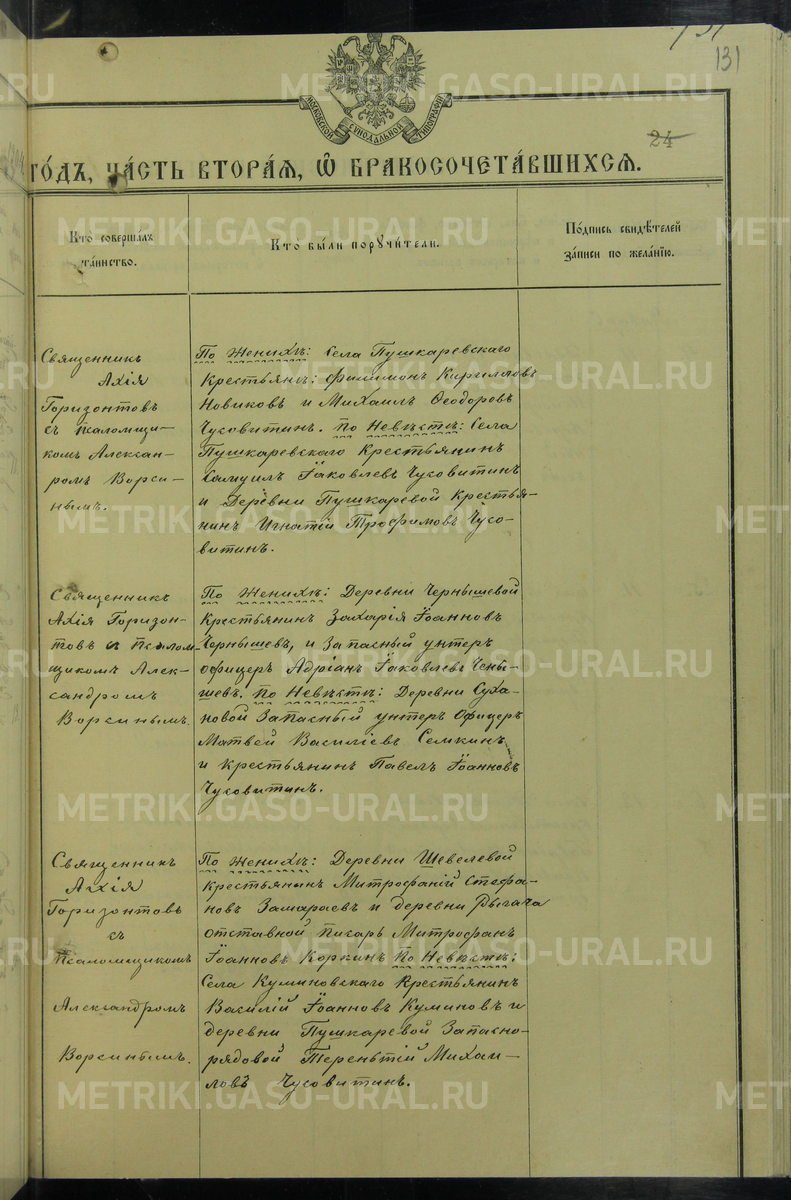 131
МОСКОВСКОЙ СѴНОДАЛЬНОЙ ТИПОГРАФІИ
24
ГО́ДЪ, ЧА́СТЬ ВТОРА́Я, Ѡ҆ БРАКОСОЧЕТА́ВШИХСЯ.
Кто̀ соверша́лъ
та́инство.
Кто̀ бы́ли порꙋчи́тели.
По́дпись свидѣ́телей
за́писи по жела́нїю.
Священникъ
Ахія
Горизонтовъ
съ псаломщи-
комъ Алексан-
ромъ Ворси-
нымъ.
По Женихѣ: Села Пушкаревскаго
Крестьянъ: Филимонъ Кирилловъ
Новиковъ и Михаилъ Феодоровъ
Чусовитинъ. По Невѣстѣ: Села
Пушкаревскаго Крестьянинъ
Самуилъ Іаковлевъ Чусовитинъ
и Деревни Пушкаревой Крестья-
нинъ Игнатій Трофимовъ Чусо-
витинъ.
Священникъ
Ахія Горизон-
товъ съ Псалом-
щикомъ Алек-
сандромъ
Ворсинымъ.
По Женихѣ: Деревни Чернышевой
Крестьянинъ Захарія Іоанновъ
Чернышевъ, и Запасный унтеръ
офицеръ Адріанъ Іаковлевъ Чены-
шевъ. По Невѣстѣ: Деревни Суха-
новой Запасный унтеръ Офицеръ
Матвей Василіевъ Семкинъ
и крестьянинъ Павелъ Іоанновъ
Чусовитинъ.
Священникъ
Ахія
Горизонтовъ
съ
Псаломщикомъ
Александромъ
Ворсинымъ.
По Женихѣ: Деревни Шевелевой
крестьянинъ Митрофаній Стефа-
новъ Замараевъ и деревни Рычкова
отставной писарь Митрофанъ
Іоанновъ Коркинъ По Невѣстѣ:
Села Куминовскаго Крестьянинъ
Василій Іоанновъ Куминовъ и
деревни Пушкаревой Запасно-
рядовой Терентій Михаи-
ловъ Чусовитинъ.
METRIKI.GASO-URAL.RU